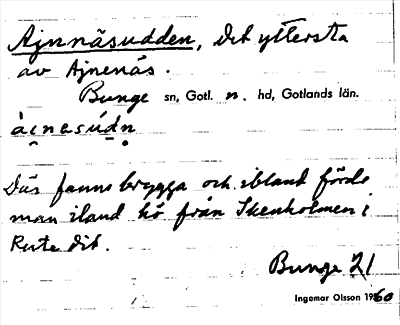 Ajnnäsudden, Det yttersta
av Ajnenäs.
Bunge sn, Gotl. n. hd, Gotlands län.
àinasúdn
Där fanns brygga och ibland förde
man iland hö från Skenholmen i
Rute dit.
Bunge 21
Ingemar Olsson 1960